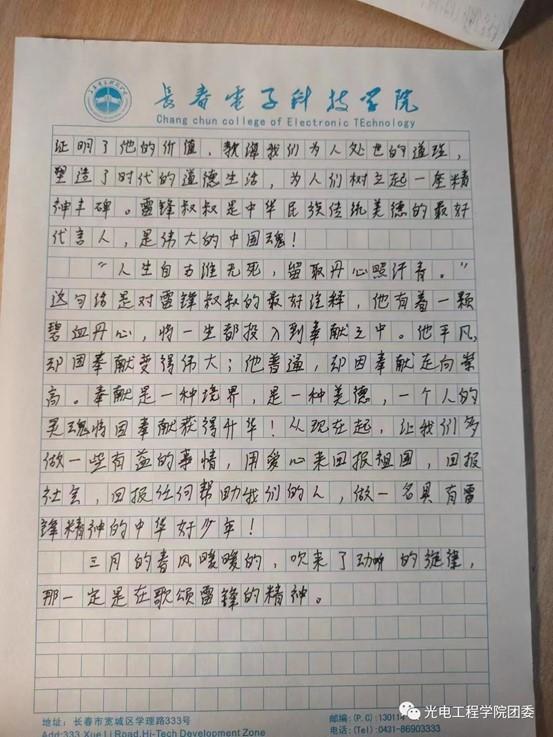 长春电子科技学院
Chang chun college of Electronic TEchnology
证明了他的价值，教海我们为人处世的道理，
塑造了时代的道德生活，为人们树立起一座精
神丰碑。雷锋叔叔是中华民族传统美德的最好
代言人，是伟大的中国魂！
“人生自古谁无死，留取丹心照汗青。”
这句话是对雷锋叔叔的最好注释，他有着一颗
碧血丹心，将一生都投入到奉献之中。他平凡，
却因奉献变得伟大；他普通，却因奉献走向崇
高。奉献是一种境界，是一种美德，一个人的
灵魂将因奉献获得升华！从现在起，让我们多
做一些有益的事情，用爱心来回报祖国，回报
社会，回报任何帮助我们的人，做一名具有雷
锋精神的中华好少年！
三月的春风暖暖的，吹来了动听的旋律，
那一定是在歌颂雷锋的精神。
地址：长春市宽城区学理路333号
Add:333 Xue Li Road,Hi-Tech Development Zone
邮编:(P.C):13011
电话:(Tel):0431-86903333
光电工程学院团委